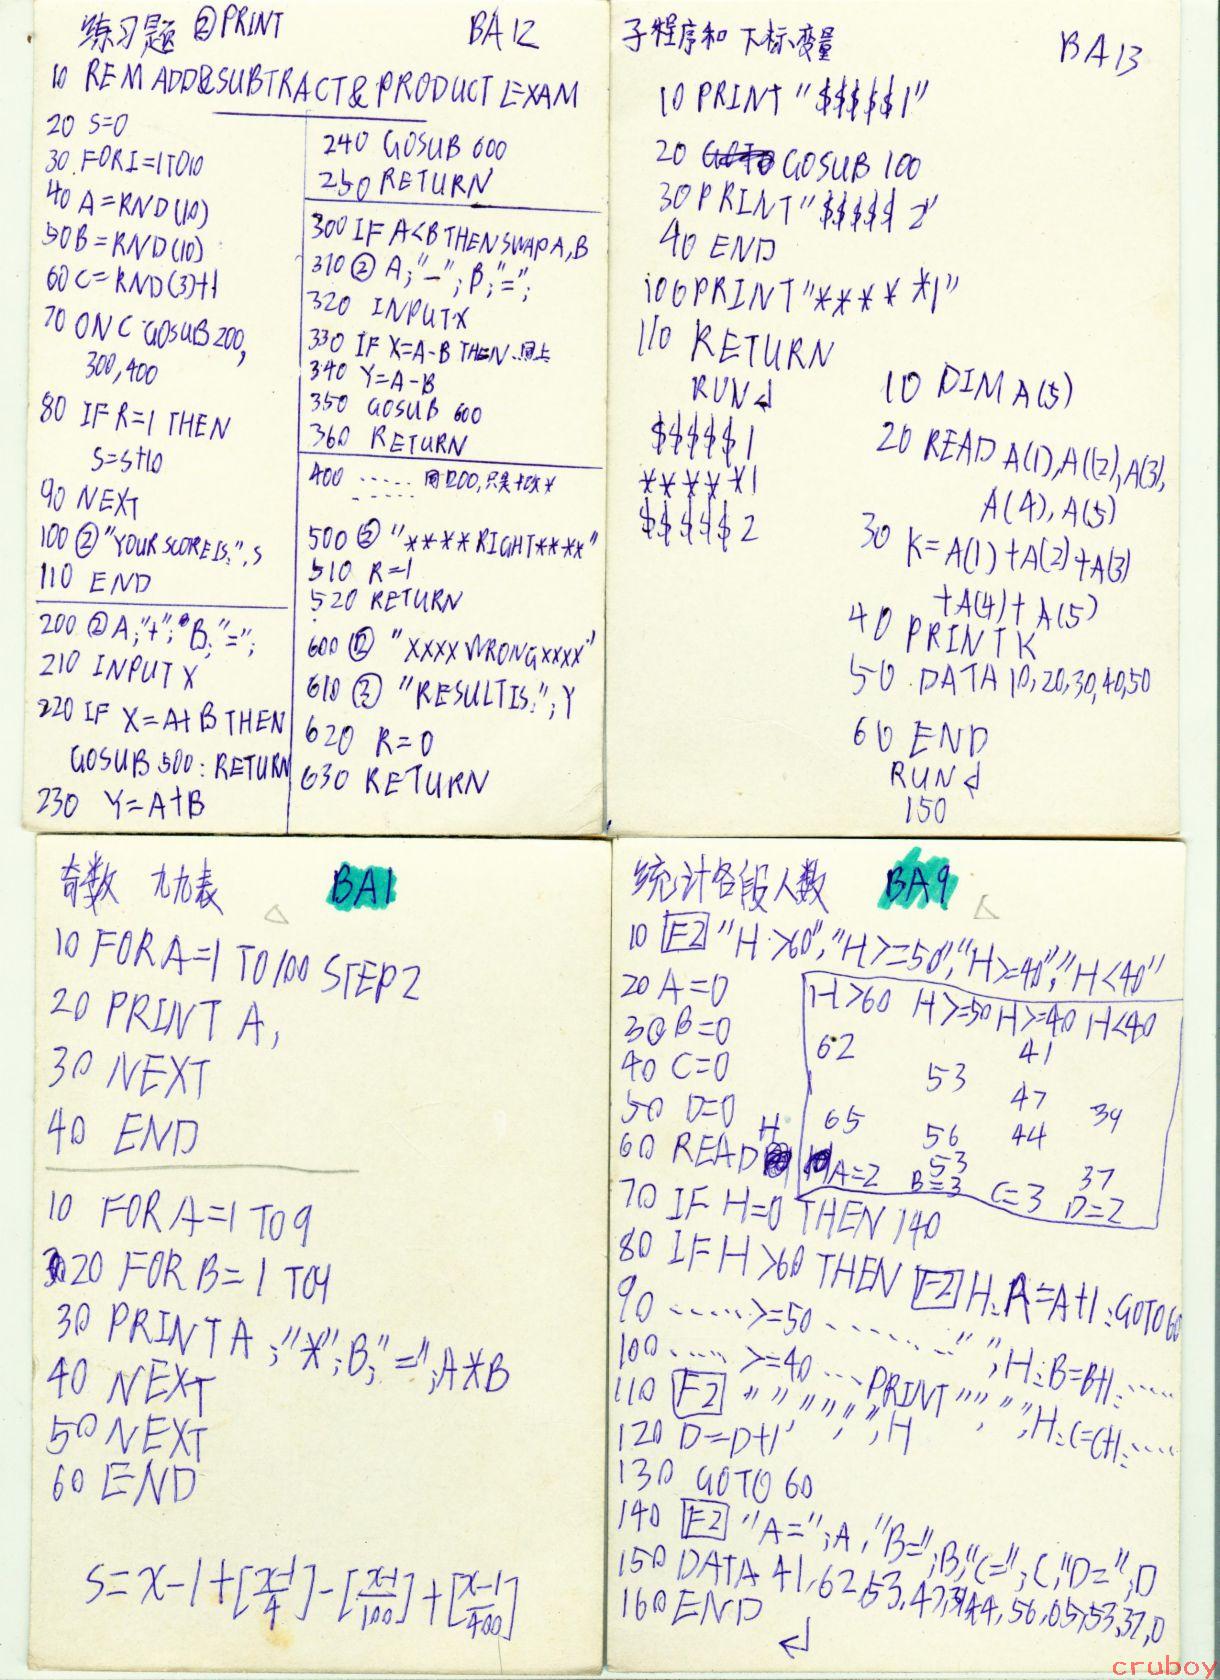 练习题 ②PRINT BA12
10 REM ADD&SUBTRACT&PRODUCT EXAM
20 S=0
30 FOR I=1TO10
40 A=RND(10)
50 B=RND(10)
60 C=RND(3)+1
70 ON C GOSUB 200,
300,400
80 IF R=1 THEN
S=S+10
90 NEXT
100 ② "YOUR SCORE IS:",S
110 END
200 ② A;"+";B;"=";
210 INPUT X
220 IF X=A+B THEN
GOSUB 500: RETURN
230 Y=A+B
240 GOSUB 600
250 RETURN
300 IF A<B THEN SWAP A,B
310 ② A;"-";B;"=";
320 INPUT X
330 IF X=A-B THEN..同上
340 Y=A-B
350 GOSUB 600
360 RETURN
400 ...... 同200,只是+改*
......
500 ② "****RIGHT****"
510 R=1
520 RETURN
600 ② "XXXX WRONG XXXX"
610 ② "RESULT IS:";Y
620 R=0
630 RETURN
子程序和下标变量 BA13
10 PRINT "$$$$$1"
20 GOSUB 100
30 PRINT "$$$$$ 2"
40 END
100 PRINT "*****1"
110 RETURN
RUN↲
$$$$$1
*****1
$$$$$2
10 DIM A(5)
20 READ A(1),A(2),A(3),
A(4),A(5)
30 K=A(1)+A(2)+A(3)
+A(4)+A(5)
40 PRINT K
50 DATA 10,20,30,40,50
60 END
RUN↲
150
奇数 九九表 BA1
10 FOR A=1 TO 100 STEP 2
20 PRINT A,
30 NEXT
40 END
10 FOR A=1 TO 9
20 FOR B=1 TO 9
30 PRINT A;"*";B;"=";A*B
40 NEXT
50 NEXT
60 END
S=x-1+[x-1/4]-[x-1/100]+[x-1/400]
统计各段人数 BA9
10 F2 "H>60","H>=50","H>=40","H<40"
20 A=0
30 B=0
40 C=0
50 D=0
60 READ H
H>60 H>=50 H>=40 H<40
62 41
53
47
65 39
56 44
53 37
A=2 B=3 C=3 D=2
70 IF H=0 THEN 140
80 IF H>60 THEN F2 H:A=A+1:GOTO 60
90 ...... >=50 ....... " ",H:B=B+1:.....
100 ..... >=40 ... PRINT " "," ",H:C=C+1:.....
110 F2 " "," "," ",H
120 D=D+1
130 GOTO 60
140 F2 "A=";A,"B=";B,"C=";C,"D=";D
150 DATA 41,62,53,47,39,44,56,65,53,37,0
160 END
↲
cruboy